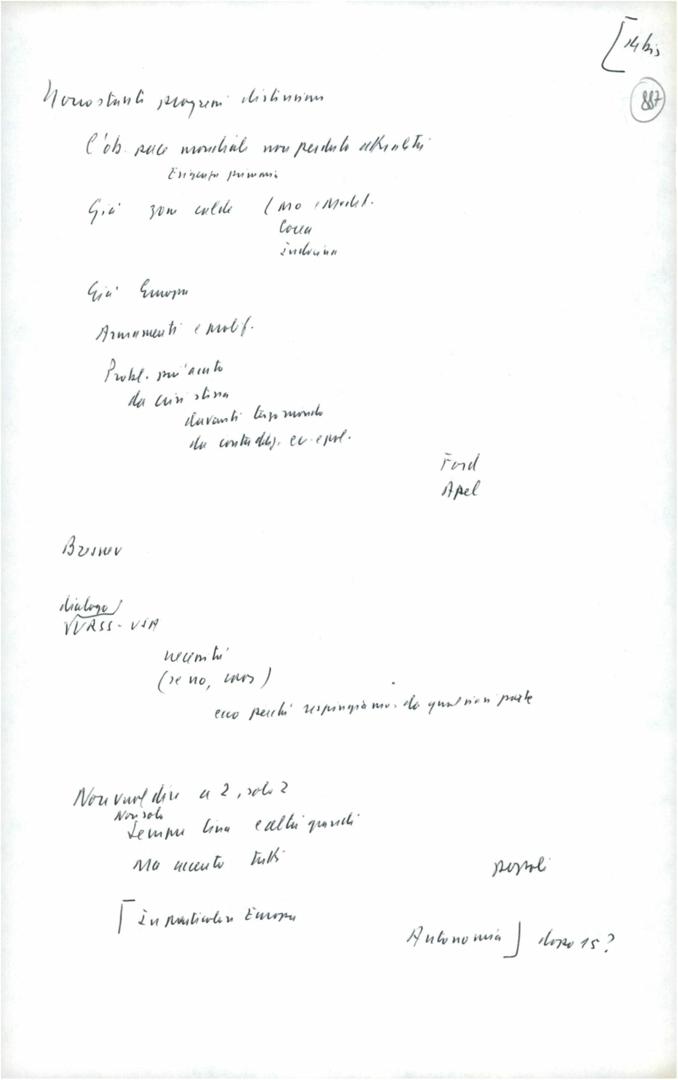 [14 bis
887
Nonostanti progressi distensione
l'ob. pace mondiale non perduto attualità
Esigenza primaria
Già zone calde (MO e Medit.
Corea
Indocina
Già Europa
Armamenti e prolif.
Probl. più acuto
da crisi stessa
davanti terzo mondo
da contraddiz. ec.
Ford
Apel
Bresnev
dialogo
URSS - USA
necessità
(se no, caos)
ecco perché respingiamo da qualsiasi parte
Non vuol dire a 2, solo 2
Non solo
Sempre Cina e altri grandi
Ma accento tutti
popoli
[In particolare Europa
Autonomia] dopo 15?